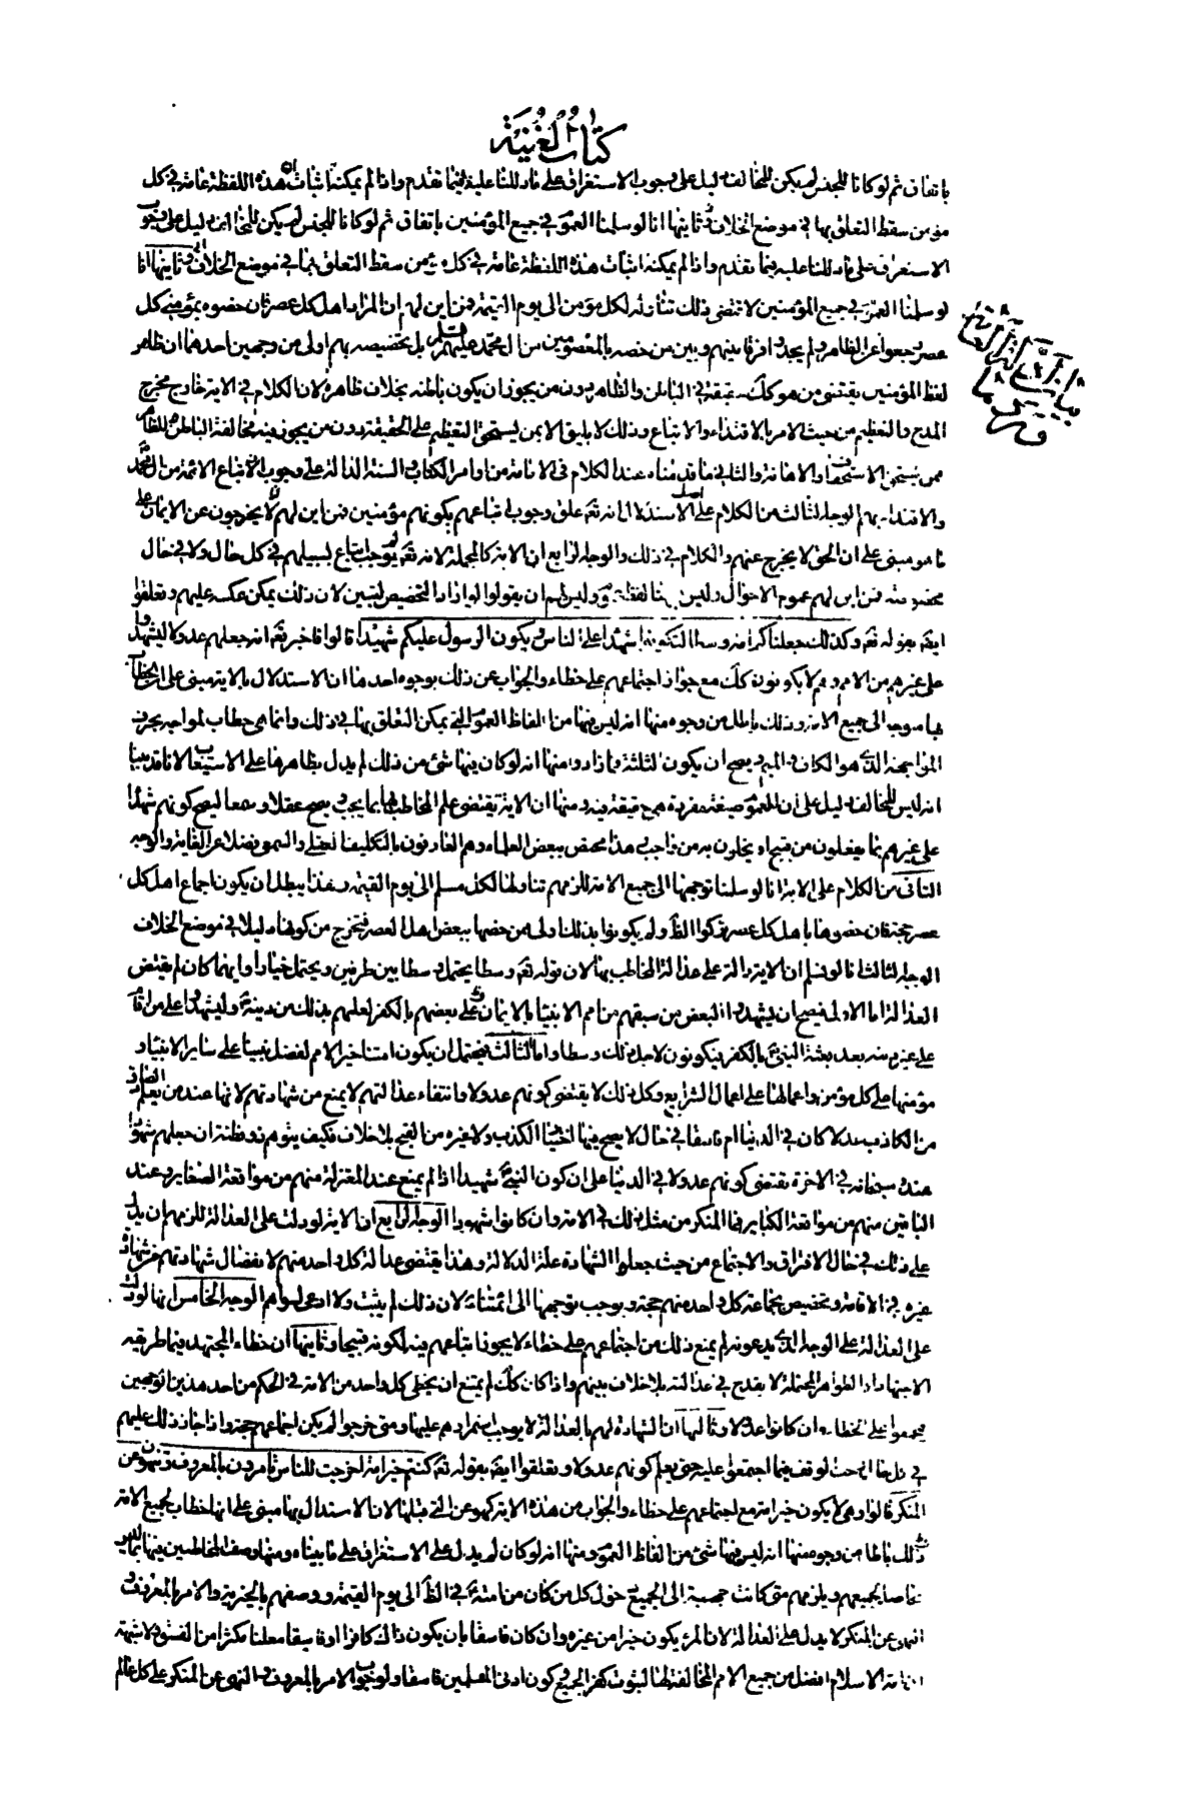 كتاب الغنية
باتفاق ثم لو كانا للجنس لم يكن للمخالف دليل على وجوب الاستغراق على ما دللنا عليه فيما تقدم واذا لم يمكنه اثبات هذه اللفظة عامة في كل
مؤمن سقط التعلق بها في موضع الخلاف وثانيها انا لو سلمنا العموم في جميع المؤمنين باتفاق ثم لو كانا للجنس لم يكن للمخالف دليل على وجوب
الاستغراق على ما دللنا عليه فيما تقدم واذا لم يمكنه اثبات هذه اللفظة عامة في كل مؤمن سقط التعلق بها في موضع الخلاف وثانيها انا
لو سلمنا العموم في جميع المؤمنين لاقتضى ذلك تناوله لكل مؤمن الى يوم القيمة فمن اين لهم ان المراد اهل كل عصر فان خصوه بمؤمني كل
عصر رجعوا عن الظاهر ولم يجدوا فرقا بينهم وبين من خصه بالمعصومين من ال محمد عليهم السلم بل تخصيصه بهم اولى من وجهين احدهما ان ظاهر
لفظ المؤمنين يقتضى من هو كك حقيقة في الباطن والظاهر دون من يجوز ان يكون باطنه بخلاف ظاهره لان الكلام في الاية خارج مخرج
المدح والتعظيم من حيث الامر بالاقتداء والاتباع وذلك لا يليق الا بمن يستحق التعظيم على الحقيقة دون من يجوز فيه مخالفة الباطن للظاهر
ممن يستحق الاستخفاف والاهانة والثاني ما قدمناه عند الكلام في الامامة من اوامر الكتاب والسنة الدالة على وجوب اتباع الائمة من ال محمد
والاقتداء بهم الوجه الثالث من الكلام على اصل الاستدلال انه تعم علق وجوب اتباعهم بكونهم مؤمنين فمن اين لهم انهم لا يخرجون عن الايمان
ما هو مبنى على ان الحق لا يخرج عنهم والكلام في ذلك والوجه الرابع ان الاية كالمجملة لانه تعم لم يوجب اتباع لسبيلهم في كل حال ولا في حال
مخصوصة فمن اين لهم عموم الاحوال وليس هنا لفظ وليس لهم ان يقولوا لو اراد التخصيص لبين لان ذلك يمكن عكسه عليهم وتعلقوا
ايضا بقوله تعم وكذلك جعلناكم امة وسطا لتكونوا شهداء على الناس ويكون الرسول عليكم شهيدا قالوا فاخبر تعم انه جعلهم عدولا ليشهدوا
على غيرهم من الامم وهم لا يكونون كك مع جواز اجتماعهم على خطاء والجواب عن ذلك بوجوه احدها ان الاستدلال بالاية مبنى على ان الخطاب
بها موجه الى جميع الامة وذلك باطل من وجوه منها انه ليس فيها من الفاظ العموم التي يمكن التعلق بها في ذلك وانما هي خطاب لمواجه بحرف
المواجهة الذي هو الكاف والميم ويصح ان يكون لثلثة فما زاد ومنها انه لو كان فيها شئ من ذلك لم يدل بظاهرها على الاستيعاب لانا قد بينا
انه ليس للمخالف دليل على ان للعموم صيغة مفردة هي حقيقة فيه ومنها ان الاية تقتضى علم المخاطب فيها بما يجب ويصح عقلا وسمعا ليصح كونهم شهداء
على غيرهم بما يفعلون من قبيح او يخلون به من واجب وهذا مختص ببعض العلماء وهم العارفون بالتكليف العقلى والسمعى فضلا عن العامة والوجه
الثاني من الكلام على الاية انا لو سلمنا توجهها الى جميع الامة للزمهم تناولها لكل مسلم الى يوم القيمة وهذا يبطل ان يكون اجماع اهل كل
عصر حجة فان خصوها باهل كل عصر تركوا الظاهر ولم يكونوا بذلك اولى ممن خصها ببعض اهل العصر فتخرج من كونها دليلا في موضع الخلاف
الوجه الثالث انا لو نسلم ان الاية دالة على عدالة المخاطب بها لان قوله تعم وسطا يحتمل وسطا بين طرفين ويحتمل خيارا وايهما كان لم يقتض
العدالة اما الاول فيصح ان يشهدوا البعض من سبقهم من امم الانبياء بالايمان وعلى بعضهم بالكفر لعلمهم بذلك من دينه وليشهدوا على من اقام
على غير دينه بعد بعثة النبي بالكفر فيكونون لاجل ذلك وسطا واما الثالث فيحتمل ان يكون امتنا خير الامم لفضل نبينا على ساير الانبياء و
مؤمنها على كل مؤمن واعمالنا على اعمال الشرايع وكل ذلك لا يقتضى كونهم عدولا وانتفاء عدالتهم لا يمنع من شهادتهم لانها عند من يعلم الصادق
من الكاذب عدلا كان في الدنيا ام فاسقا في حال لا يصح فيها اختيار الكذب ولا غيره من القبح بلا خلاف فكيف يتوهم ذو فطنة ان جعلهم شهودا
عنده سبحانه في الاخرة يقتضى كونهم عدولا في الدنيا على ان كون النبي شهيدا اذا لم يمنع عند المعتزلة منهم من مواقعة الصغاير وعند
الباقين منهم من مواقعة الكباير فما المنكر من مثل ذلك في الامة وان كانوا شهودا الوجه الرابع ان الاية لو دلت على العدالة للزمهم ان يدل
على ذلك في حال الافتراق والاجتماع من حيث جعلوا الشهادة علة الدلالة وهذا يقتضى عدالة كل واحد منهم لانفصال شهادتهم من شهادة
غيره في الاقامة وتخصيص جماعة كل واحد منهم حجة ويوجب توجهها الى ائمتناء لان ذلك لم يثبت ولا ادعى لسواهم الوجه الخامس انها لو دلت
على العدالة على الوجه الذي يدعونه لم يمنع ذلك من اجتماعهم على خطاء لا يجوز اتباعهم فيه لكونه قبيحا وثانيها ان خطاء المجتهد فيما طريقه
الاجتهاد او الظواهر المجملة لا يقدح في عدالته بلا خلاف بينهم واذا كان كك لم يمتنع ان يخطى كل واحد من الامة في الحكم من احد هذين الوجهين
فيجمعوا على الخطاء وان كانوا عدولا وثالثها ان الشهادة لهم بالعدالة لا يوجب استمرارهم عليها ومتى خرجوا لم يكن اجماعهم حجة واذا جاز ذلك عليهم
في كل حال وجب الوقف فيما اجتمعوا عليه حتى يعلم كونهم عدولا وتعلقوا ايضا بقوله تعم كنتم خير امة اخرجت للناس تامرون بالمعروف وتنهون عن
المنكر قالوا وهى لا يكون خير امة مع اجتماعهم على خطاء والجواب من هذه الاية كهو عن التي قبلها لان الاستدلال بها مبنى على انها خطاب لجميع الامة
وذلك باطل من وجوه منها انه ليس فيها شئ من الفاظ العموم ومنها انه لو كان لم يدل على الاستغراق على ما بيناه ومنها وصف المخاطبين فيها بما ليس
حاصلا لجميعهم ويلزمهم متى كانت متوجهة الى الجميع دخول كل من كان من امته في الظاهر الى يوم القيمة ووصفهم بالخيرية والامر بالمعروف و
النهى عن المنكر لا يدل على العدالة لان المرء يكون خيرا من غيره وان كان فاسقا بان يكون ذاك كافرا او فاسقا معلنا مكثرا من الفسق ولا شبهة
ان امة الاسلام افضل من جميع الامم المخالفة لها لثبوت كفر الجميع في كون ادنى المسلمين فاسقا ولوجوب الامر بالمعروف والنهى عن المنكر على كل عالم